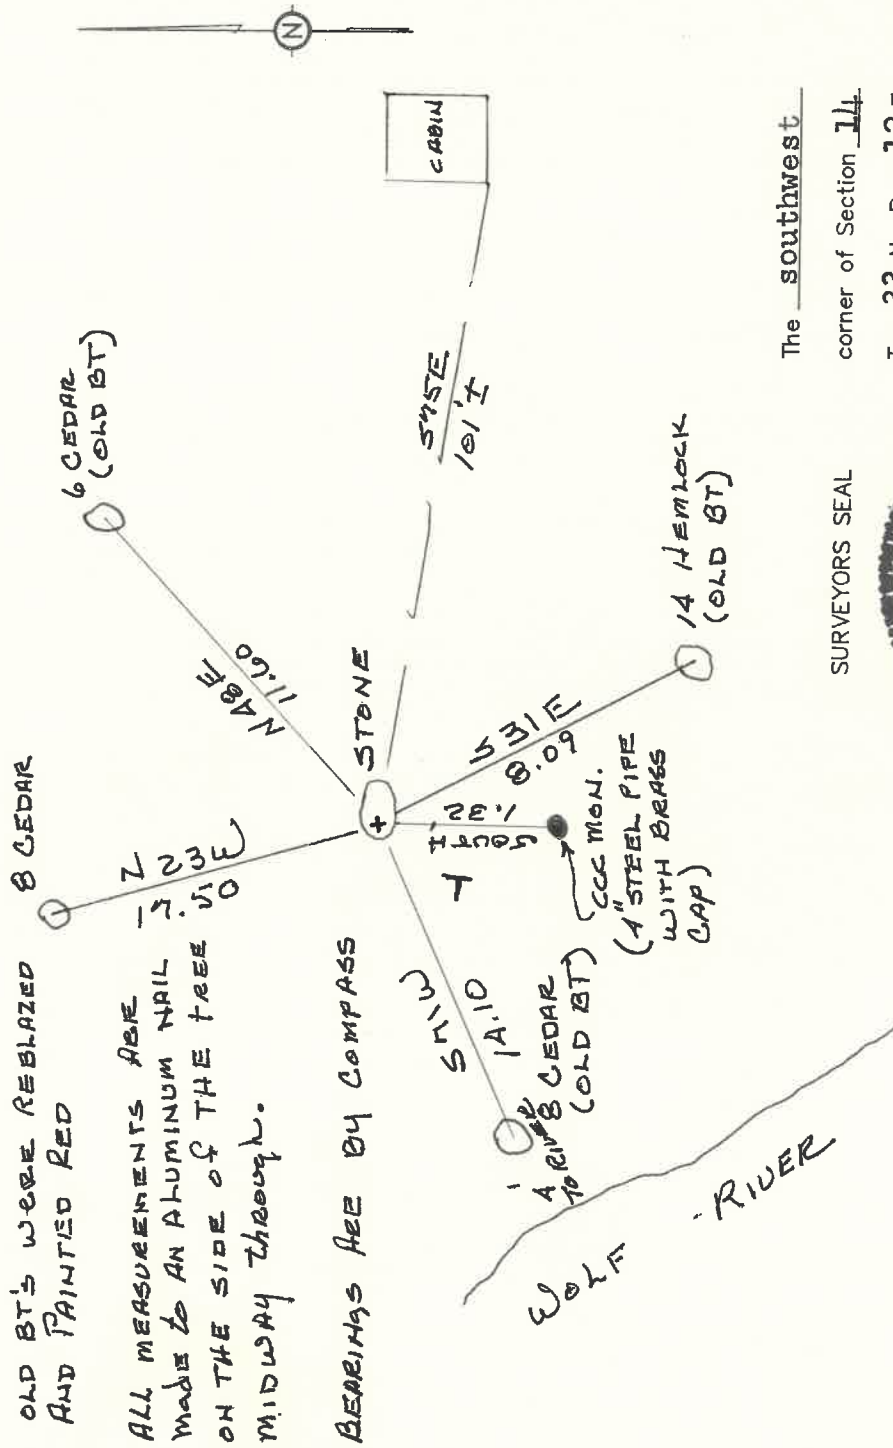 OLD BT'S WERE REBLAZED
AND PAINTED RED
ALL MEASUREMENTS ARE
MADE to AN ALUMINUM NAIL
ON THE SIDE of THE tREE
MIDWAY through.
BEARINGS ARE BY COMPASS
8 CEDAR
N 23W
17.50
6 CEDAR
(OLD BT)
N48E
11.60
N
STONE
CABIN
S75E
101'±
S71W
14.10
8 CEDAR
(OLD BT)
4'
TO RIVER
SOUTH
1.32
CCC MON.
(4" STEEL PIPE
WITH BRASS
CAP)
S31E
8.09
14 HEMLOCK
(OLD BT)
WOLF - RIVER
SURVEYORS SEAL
The southwest
corner of Section 14